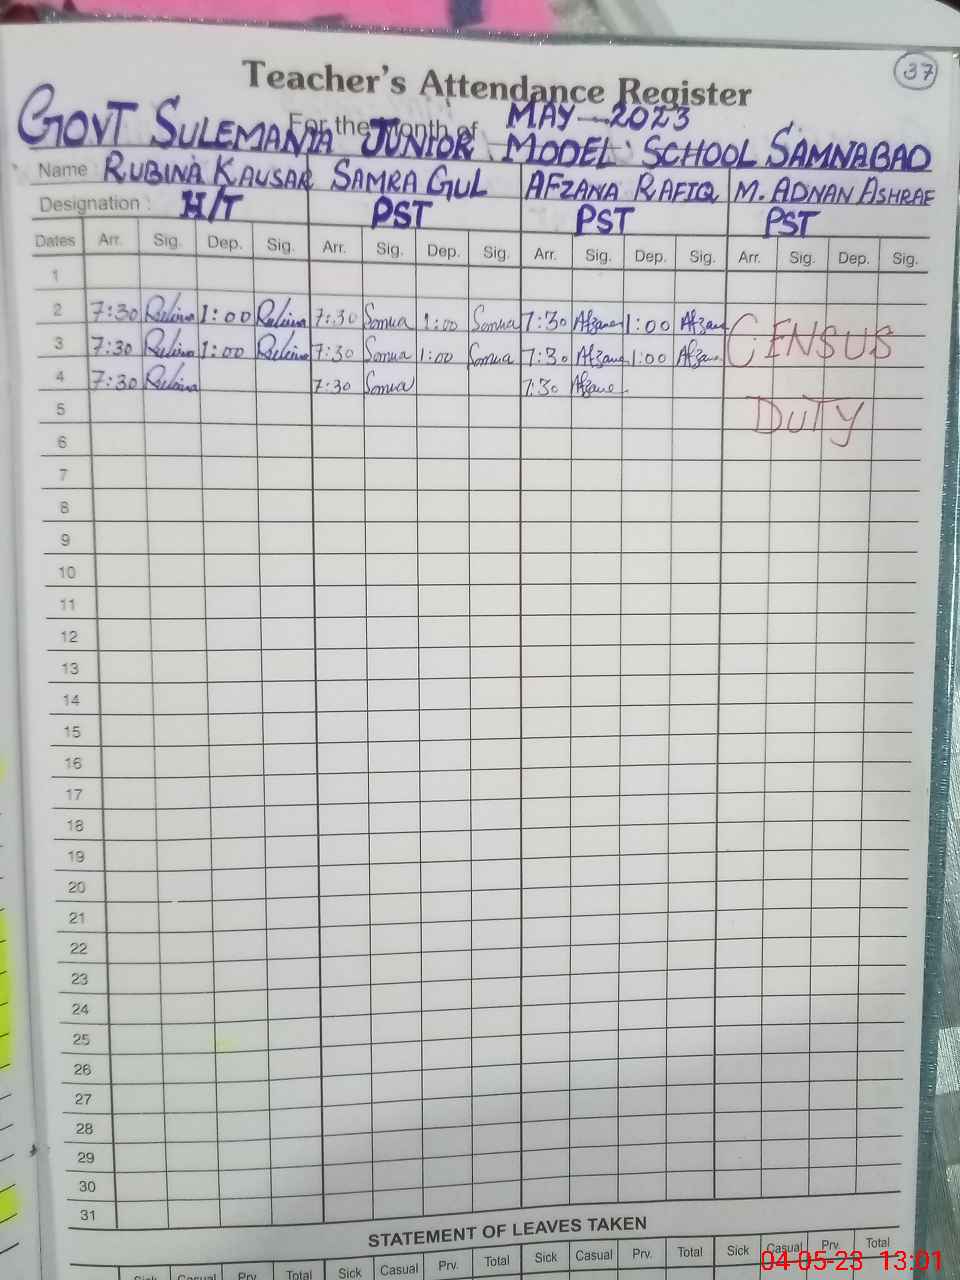 37
Teacher's Attendance Register
For the Month of MAY-2023
GOVT SULEMANIA JUNIOR MODEL SCHOOL SAMNABAD
Name RUBINA KAUSAR SAMRA GUL AFZANA RAFIQ M. ADNAN ASHRAF
Designation : H/T PST PST PST
Dates Arr. Sig. Dep. Sig. Arr. Sig. Dep. Sig. Arr. Sig. Dep. Sig. Arr. Sig. Dep. Sig.
1
2 7:30 Rubina 1:00 Rubina 7:30 Samra 1:00 Samra 7:30 Afzana 1:00 Afzana
3 7:30 Rubina 1:00 Rubina 7:30 Samra 1:00 Samra 7:30 Afzana 1:00 Afzana CENSUS
4 7:30 Rubina 7:30 Samra 7:30 Afzana
5 DUTY
6
7
8
9
10
11
12
13
14
15
16
17
18
19
20
21
22
23
24
25
26
27
28
29
30
31
STATEMENT OF LEAVES TAKEN
Sick Casual Prv. Total Sick Casual Prv. Total Sick Casual Prv. Total Sick Casual Prv. Total
04-05-23 13:01